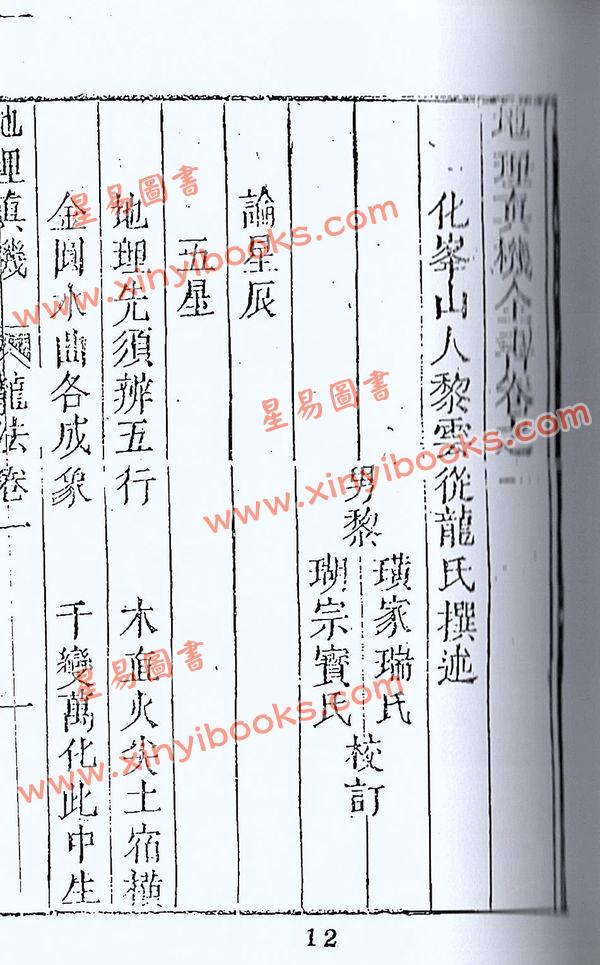 地理真機全書卷之一
化峯山人黎雲從龍氏撰述
男黎
璜家瑞氏
瑚宗寶氏
校訂
論星辰
五星
地理先須辨五行
木直火尖土宿橫
金圓水曲各成象
千變萬化此中生
地理真機
龍法卷一
一
12
星易圖書
www.xinyibooks.com
星易圖書
www.xinyibooks.com
星易圖書
www.xinyibooks.com